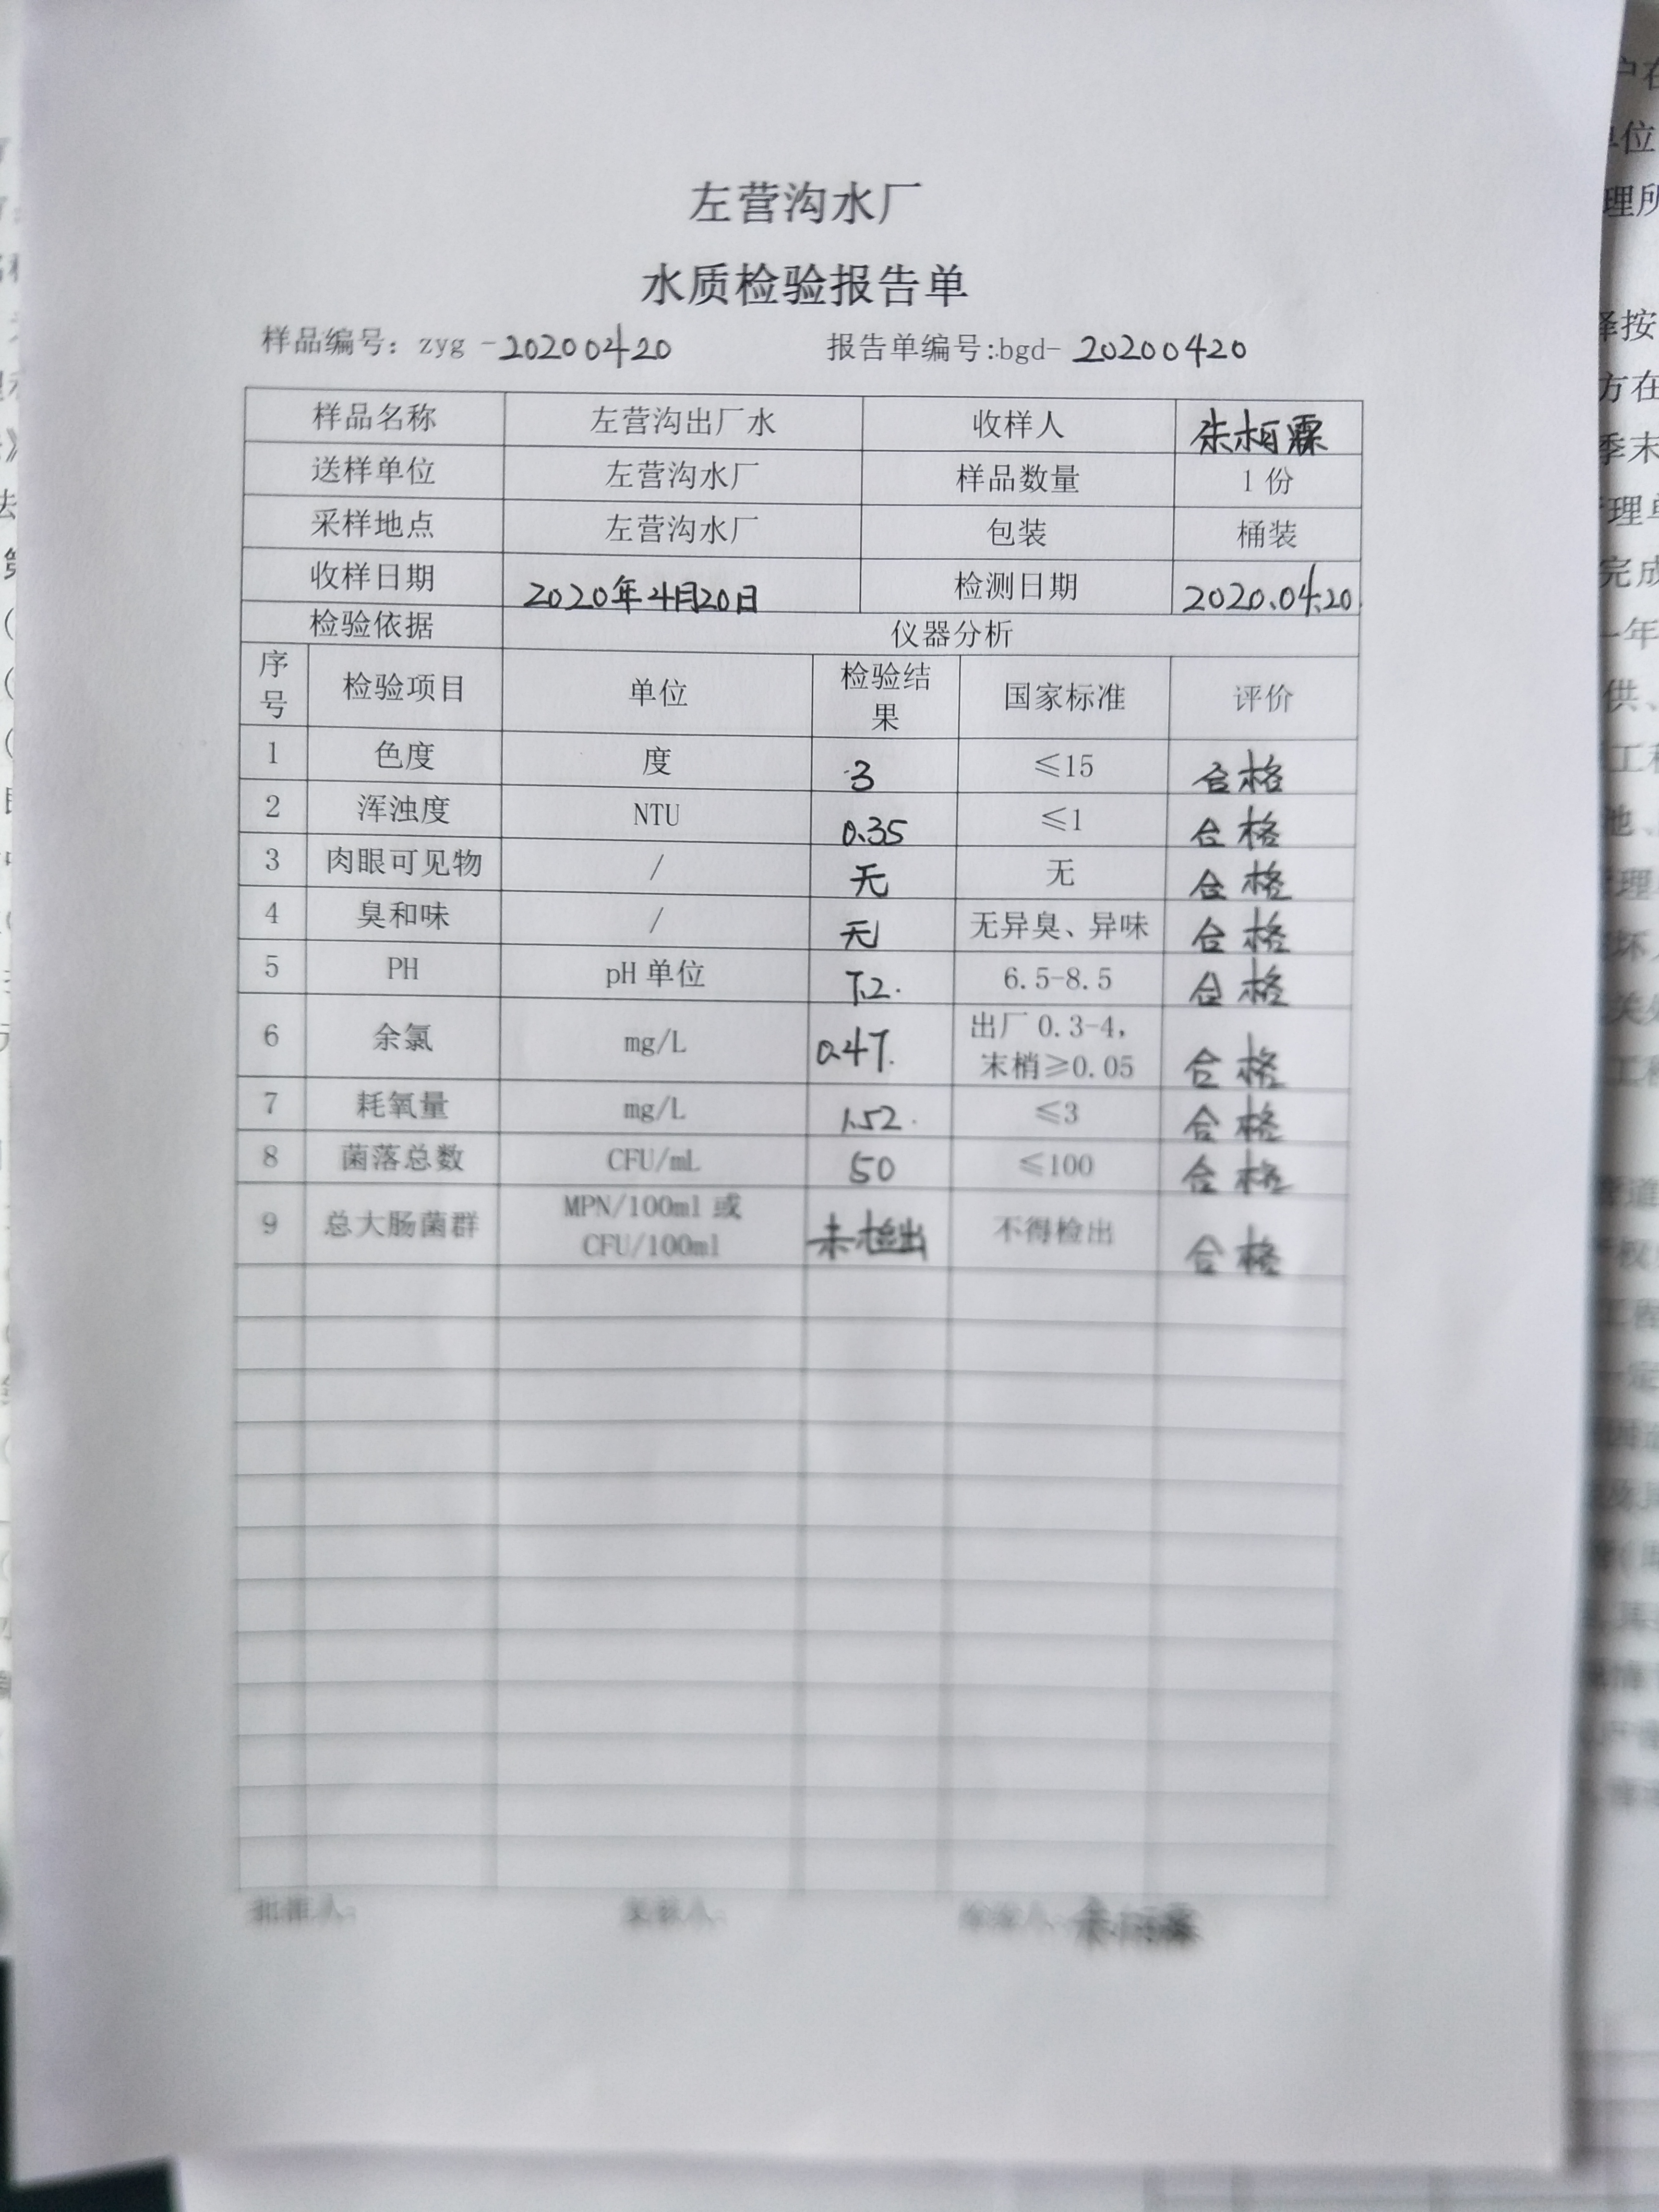 左营沟水厂
水质检验报告单
样品编号：zyg -20200420 报告单编号:bgd- 20200420
样品名称 左营沟出厂水 收样人 朱柏霖
送样单位 左营沟水厂 样品数量 1份
采样地点 左营沟水厂 包装 桶装
收样日期 2020年4月20日 检测日期 2020.04.20
检验依据 仪器分析
序号 检验项目 单位 检验结果 国家标准 评价
1 色度 度 3 ≤15 合格
2 浑浊度 NTU 0.35 ≤1 合格
3 肉眼可见物 / 无 无 合格
4 臭和味 / 无 无异臭、异味 合格
5 PH pH单位 7.2. 6.5-8.5 合格
6 余氯 mg/L 0.47. 出厂0.3-4，末梢≥0.05 合格
7 耗氧量 mg/L 1.52. ≤3 合格
8 菌落总数 CFU/mL 50 ≤100 合格
9 总大肠菌群 MPN/100ml或CFU/100ml 未检出 不得检出 合格
批准人：